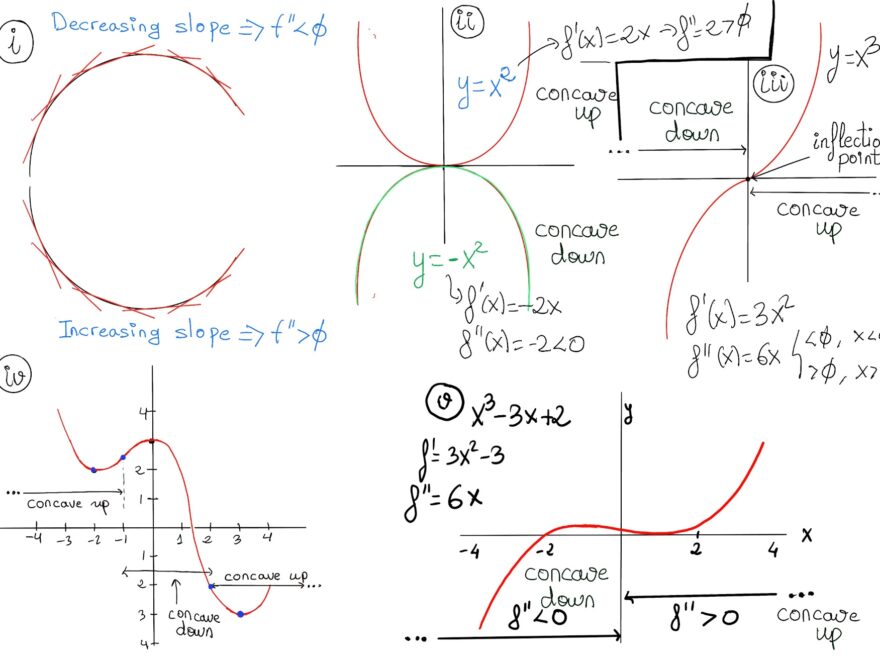 i
Decreasing slope => f''<φ
Increasing slope => f''>φ
ii
y=x²
f'(x)=2x → f''=2>φ
concave
up
y=-x²
f'(x)=-2x
f''(x)=-2<0
concave
down
iii
y=x³
concave
down
...
inflectio
point
...
concave
up
f'(x)=3x²
f''(x)=6x { <φ, x<
>φ, x>
iv
4
2
1
-4 -3 -2 -1 1 2 3 4
1
2
3
4
...
concave up
concave up ...
concave
down
v
x³-3x+2
f'=3x²-3
f''=6x
y
x
-4 -2 2 4
concave
down
f''<0
...
...
f''>0
concave
up